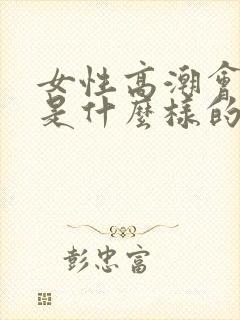 女性高潮會
是什麼樣的
彭忠富